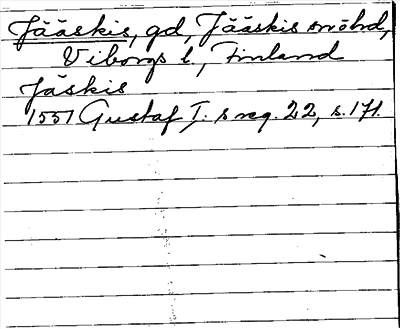 Jääskis, gd, Jääskis snöhd,
Viborgs l., Finland
Jäskis
1557 Gustaf I:s reg. 22, s. 171.